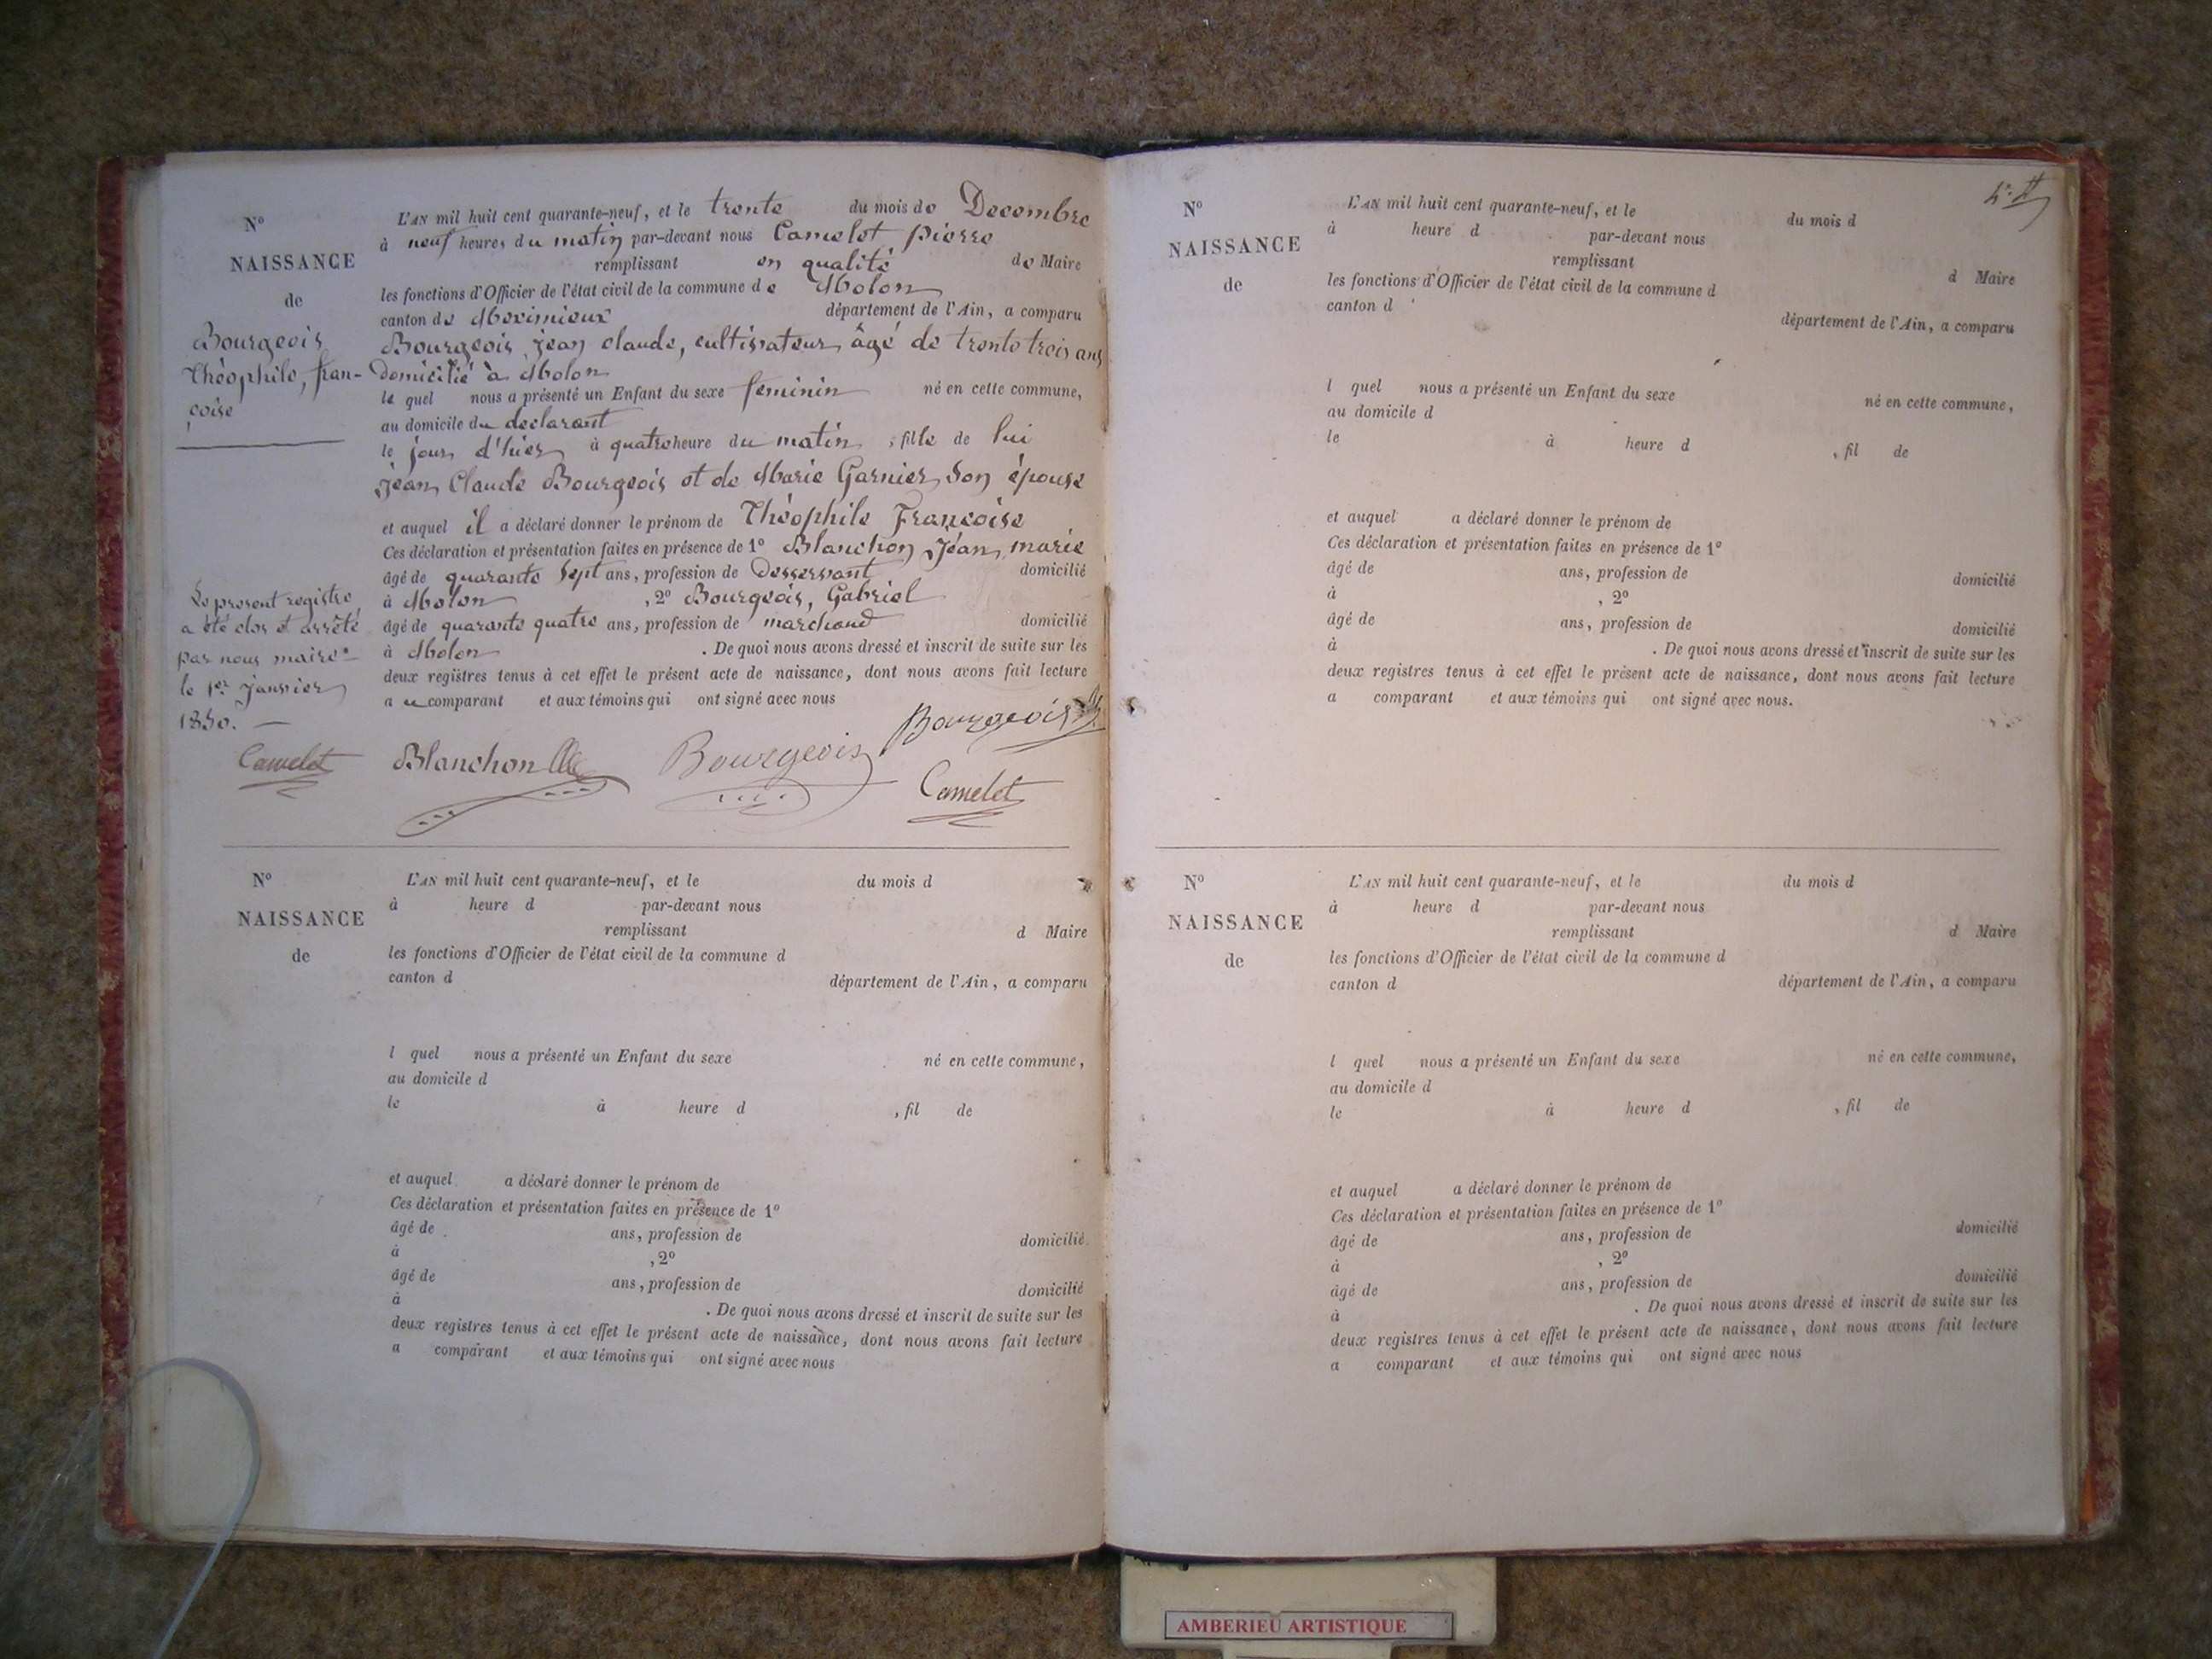 N° 
NAISSANCE
de
Bourgeois
Théophile, fran-
çoise
L'AN mil huit cent quarante-neuf, et le trente du mois de Decembre
à neuf heures du matin par-devant nous Camelot, pierre
remplissant en qualité de Maire
les fonctions d'Officier de l'état civil de la commune de Molon
canton de Meximieux département de l'Ain, a comparu
Bourgeois, jean claude, cultivateur, âgé de trente trois ans
Domicilié à Molon
le quel nous a présenté un Enfant du sexe feminin né en cette commune,
au domicile du declarant
le jour d'hier à quatre heure du matin, fille de lui
jean Claude Bourgeois et de Marie Garnier, Son épouse
et auquel il a déclaré donner le prénom de Théophile Françoise
Ces déclaration et présentation faites en présence de 1° Blanchon, Jean, marie
âgé de quarante Sept ans, profession de Desservant domicilié
à Molon, 2° Bourgeois, Gabriel
âgé de quarante quatre ans, profession de marchand domicilié
à Molon. De quoi nous avons dressé et inscrit de suite sur les
deux registres tenus à cet effet le présent acte de naissance, dont nous avons fait lecture
au comparant et aux témoins qui ont signé avec nous
Le present registre
a été clos et arrêté
par nous maire
le 1er janvier
1850. —
Camelot
Bourgeois
Blanchon
Bourgeois
Camelot
N°
NAISSANCE
de
L'AN mil huit cent quarante-neuf, et le du mois d
à heure d par-devant nous
remplissant d Maire
les fonctions d'Officier de l'état civil de la commune d
canton d département de l'Ain, a comparu
l quel nous a présenté un Enfant du sexe né en cette commune,
au domicile d
le à heure d , fil de
et auquel a déclaré donner le prénom de
Ces déclaration et présentation faites en présence de 1°
âgé de ans, profession de domicilié
à , 2°
âgé de ans, profession de domicilié
à . De quoi nous avons dressé et inscrit de suite sur les
deux registres tenus à cet effet le présent acte de naissance, dont nous avons fait lecture
a comparant et aux témoins qui ont signé avec nous
N°
NAISSANCE
de
L'AN mil huit cent quarante-neuf, et le du mois d
à heure d par-devant nous
remplissant d Maire
les fonctions d'Officier de l'état civil de la commune d
canton d département de l'Ain, a comparu
l quel nous a présenté un Enfant du sexe né en cette commune,
au domicile d
le à heure d , fil de
et auquel a déclaré donner le prénom de
Ces déclaration et présentation faites en présence de 1°
âgé de ans, profession de domicilié
à , 2°
âgé de ans, profession de domicilié
à . De quoi nous avons dressé et inscrit de suite sur les
deux registres tenus à cet effet le présent acte de naissance, dont nous avons fait lecture
a comparant et aux témoins qui ont signé avec nous.
N°
NAISSANCE
de
L'AN mil huit cent quarante-neuf, et le du mois d
à heure d par-devant nous
remplissant d Maire
les fonctions d'Officier de l'état civil de la commune d
canton d département de l'Ain, a comparu
l quel nous a présenté un Enfant du sexe né en cette commune,
au domicile d
le à heure d , fil de
et auquel a déclaré donner le prénom de
Ces déclaration et présentation faites en présence de 1°
âgé de ans, profession de domicilié
à , 2°
âgé de ans, profession de domicilié
à . De quoi nous avons dressé et inscrit de suite sur les
deux registres tenus à cet effet le présent acte de naissance, dont nous avons fait lecture
a comparant et aux témoins qui ont signé avec nous
AMBERIEU ARTISTIQUE